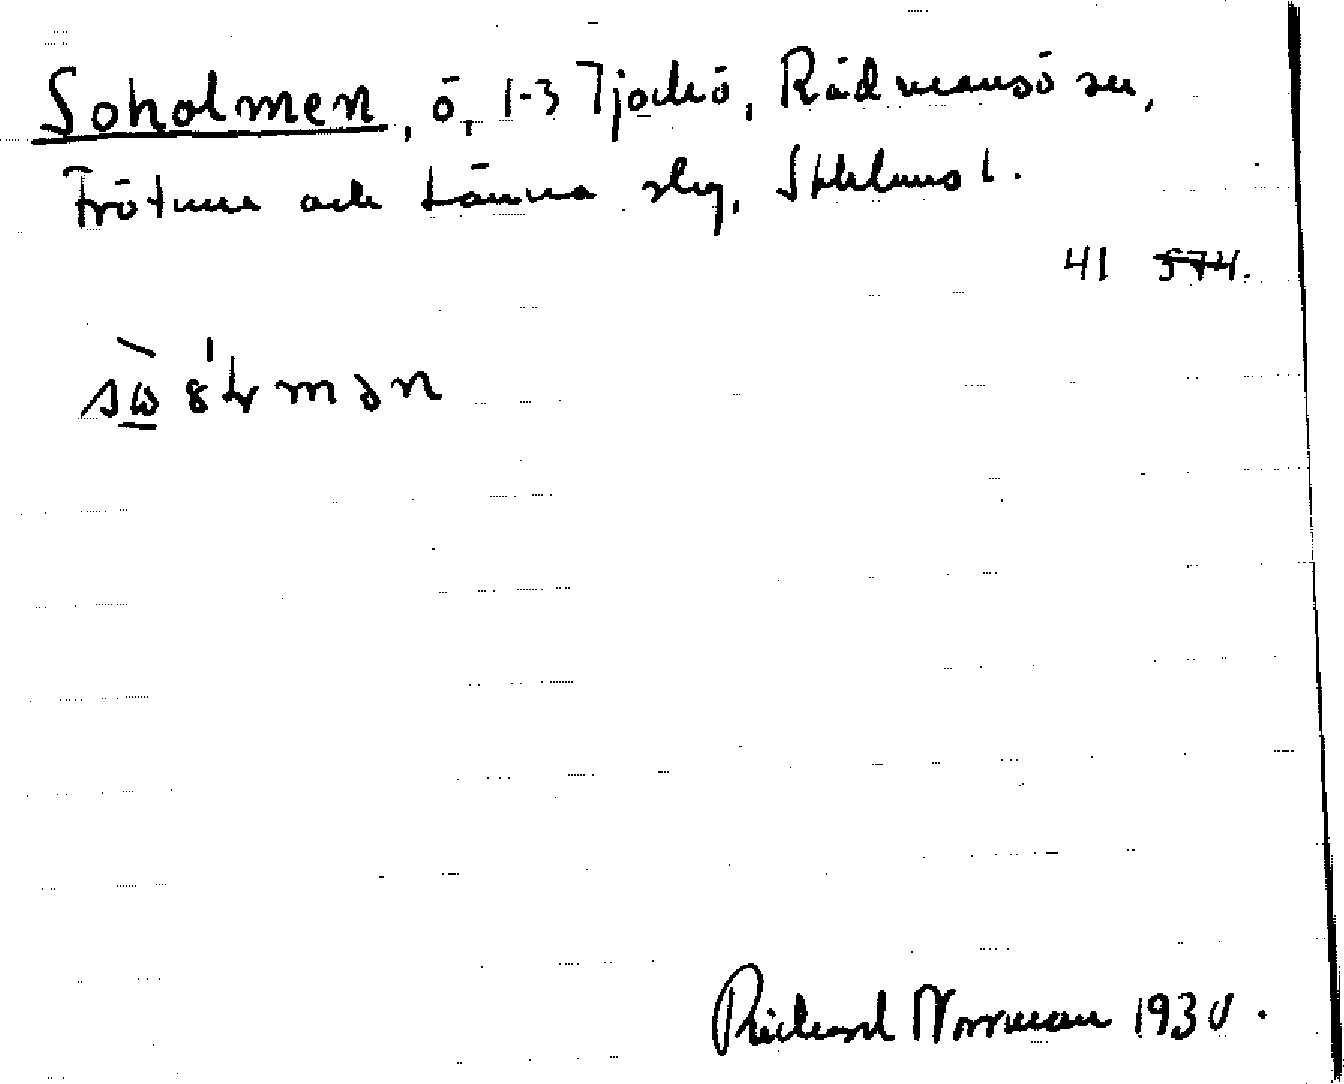 Soholmen, ö, 1-3 Tjockö, Rådmansö sn,
Frötuna och Länna slg, Sthlms l.
41 574.
Richard Norrman 1930.